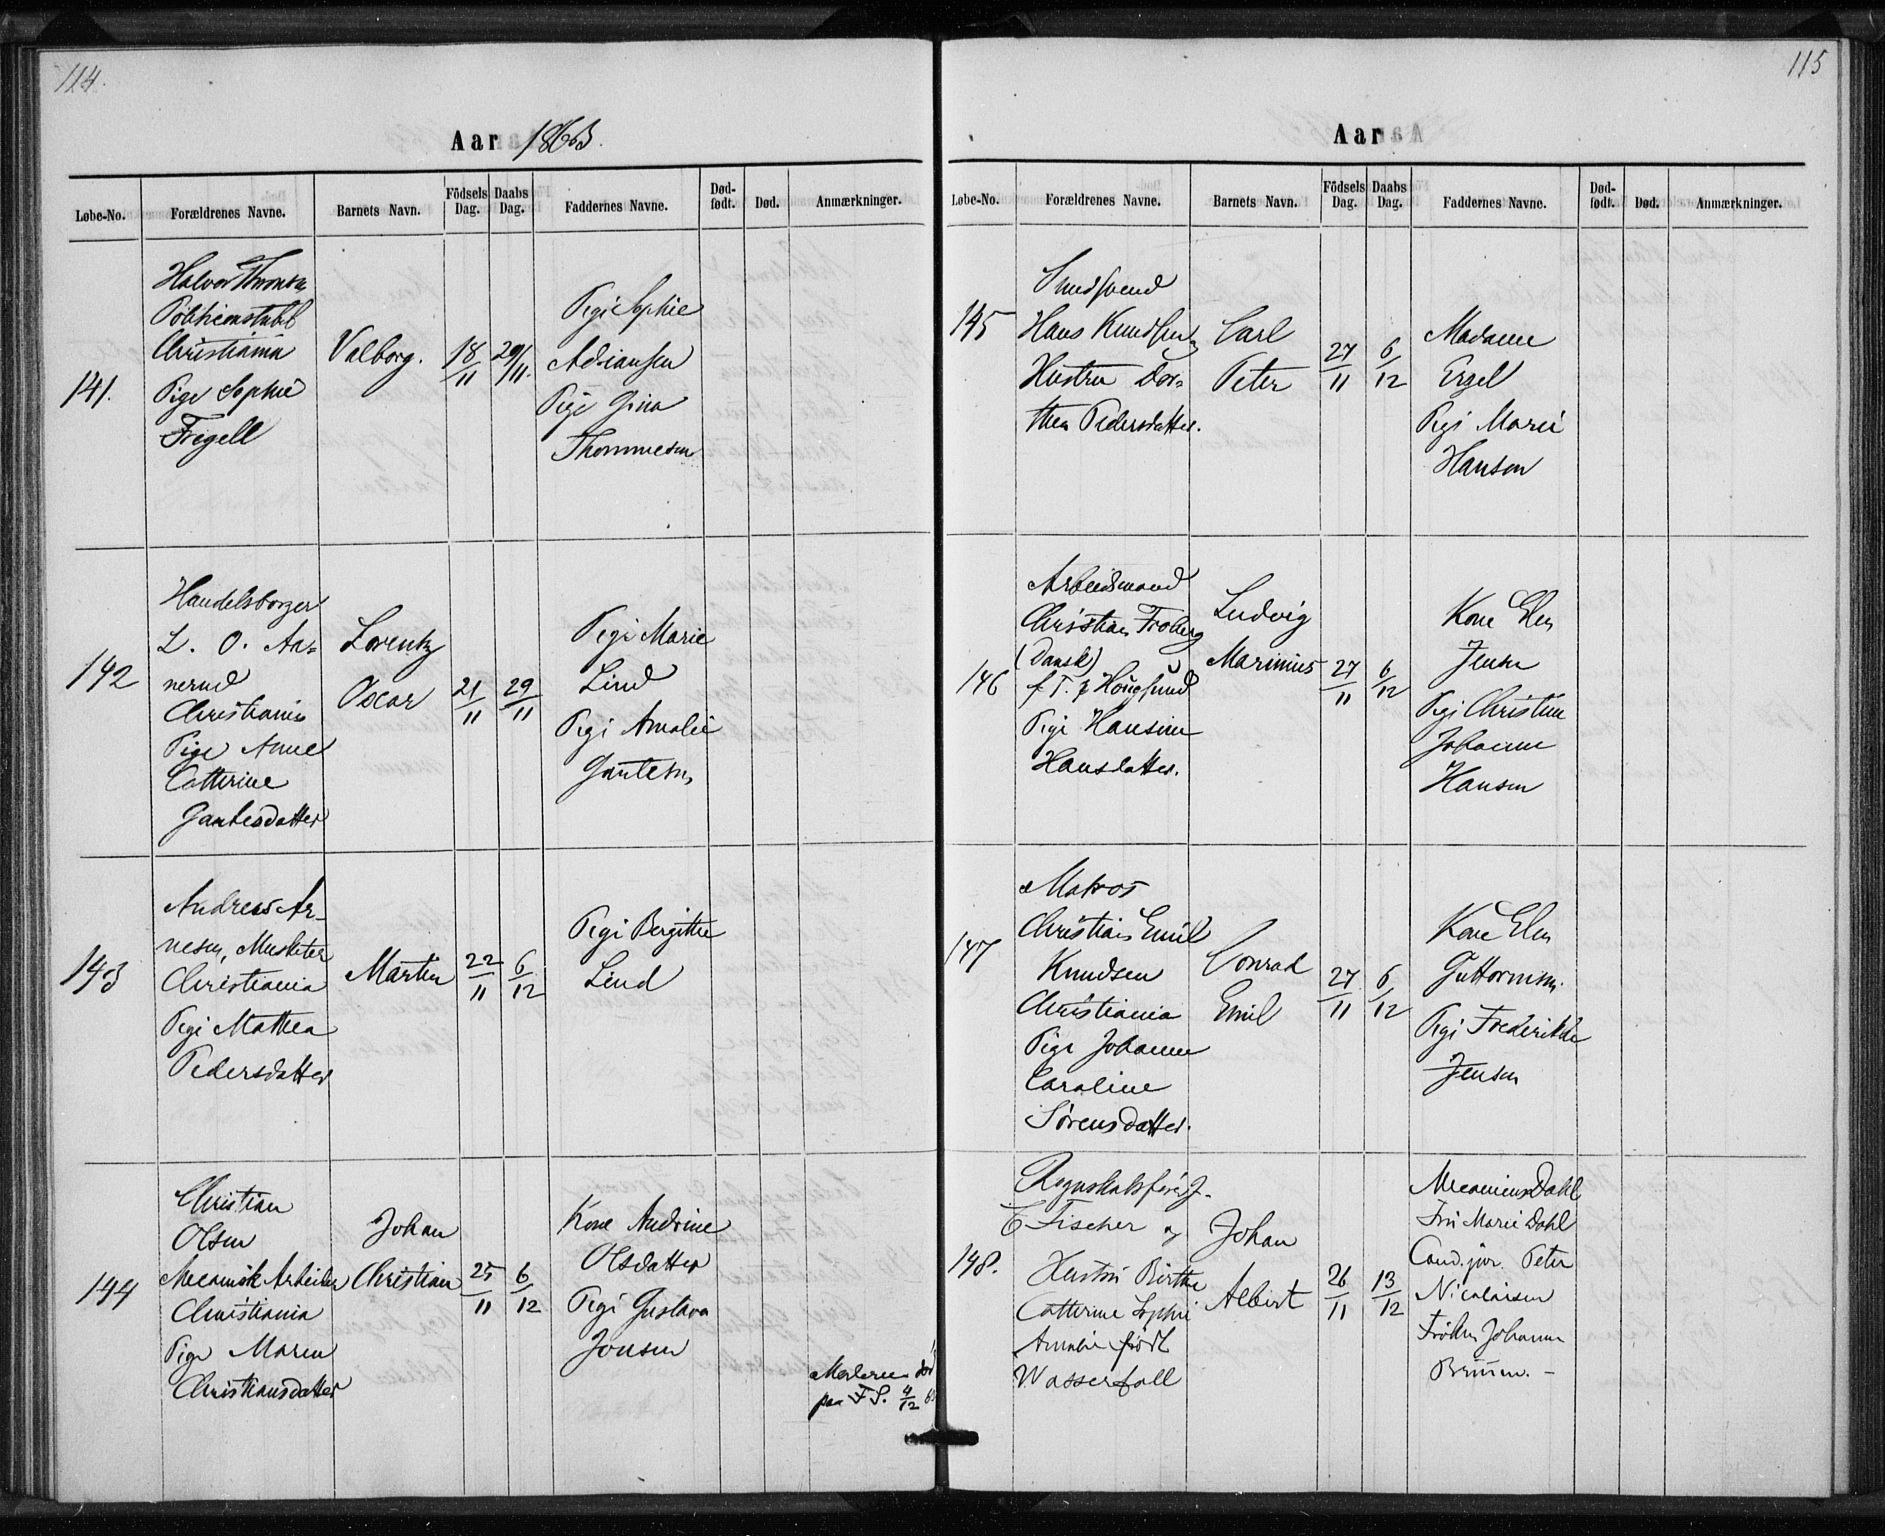 114.
Aar 1863.
Løbe-No. Forældrenes Navne. Barnets Navn. Födsels Dag. Daabs Dag. Faddernes Navne. Død-født. Død. Anmærkninger.
141.
Halvor
Christiania
Pige Sophie
Frigell
Valborg.
18/11
29/11.
Pige Sophie
Adriansen
Pige Gina
Thommesen
142
Handelsborger
L. O. Aa-
nerud
Christiania
Pige Anne
Catterine
Gautesdatter
Lorentz
Oscar
21/11
29/11
Pige Marie
Lind
Pige Amalie
Gautesen
143
Andreas Ar-
nesen, Musketer
Christiania
Pige Mathea
Pedersdatter
Martin
22/11
6/12
Pige Bergitthe
Lind
144
Christian
Olsen
Mecanisk Arbeider
Christiania
Pige Maren
Christiansdatter
Johan
Christian
25/11
6/12
Kone Andrine
Olsdatter
Pige Gustava
Jonsen
Moderen død
paa F S. 4/12
115
Aar
Løbe-No. Forældrenes Navne. Barnets Navn. Födsels Dag. Daabs Dag. Faddernes Navne. Død-født. Død. Anmærkninger.
145
Smedsvend
Hans Knudsen
Hustru Dor-
thea Pedersdatter.
Carl
Peter
27/11
6/12
Madame
Engel
Pige Marie
Hansen
146
Arbeidsmand
Christian Froberg
(Dansk)
f. T. p Hougsund
Pige Hansine
Hansdatter.
Ludvig
Marinius
27/11
6/12
Kone Elen
Jensen
Pige Christine
Johanne
Hansen
147
Matros
Christian Emil
Knudsen
Christiania
Pige Johanne
Caroline
Sørensdatter.
Conrad
Emil
27/11
6/12
Kone Elen
Guttormsen.
Pige Frederikke
Jensen
148.
Regnskabsfører J.
C Fischer og
Hustru Birthe
Catterine Sophie
Amalie født
Wasserfall
Johan
Albert
26/11
13/12
Mecanicus Dahl
Fru Marie Dahl
Cand. jur. Peter
Nicolaisen
Frøken Johanne
Bruun. -